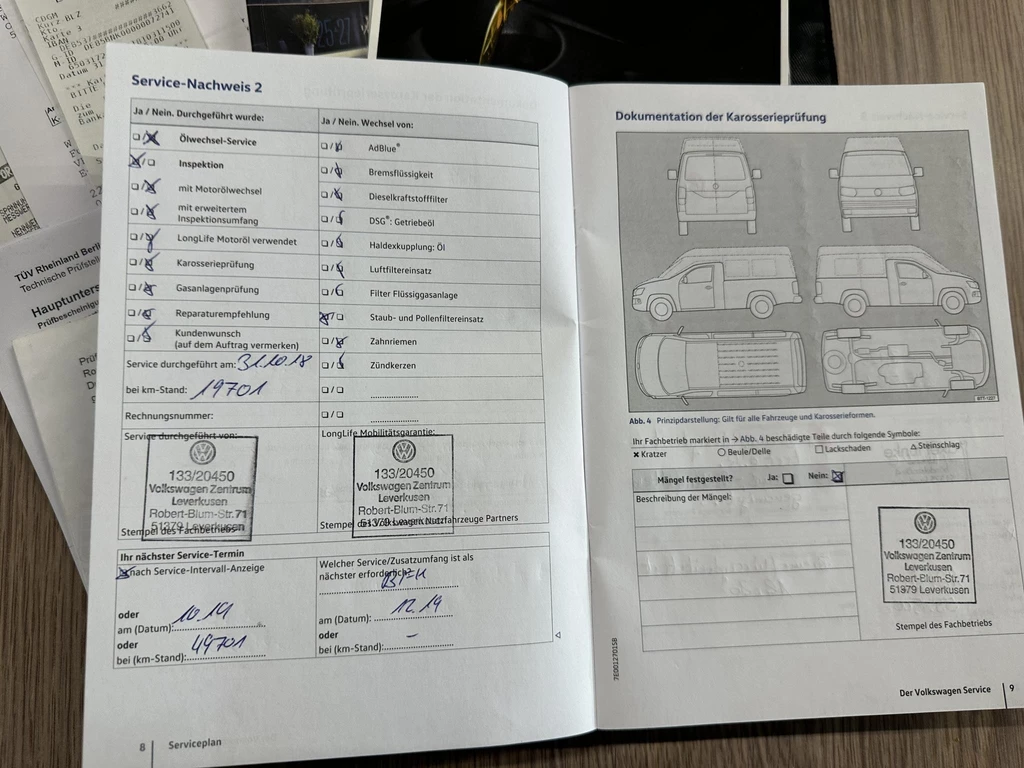 CDGM
Kurz BLZ
Kto
Karte 3
IBAN
Datum 31
TÜV Rheinland Berli
Technische Prüfstell
Hauptunters
Prüfbescheinigu
Service-Nachweis 2
Ja / Nein. Durchgeführt wurde:
Ölwechsel-Service
Inspektion
mit Motorölwechsel
mit erweitertem
Inspektionsumfang
LongLife Motoröl verwendet
Karosserieprüfung
Gasanlagenprüfung
Reparaturempfehlung
Kundenwunsch
(auf dem Auftrag vermerken)
Service durchgeführt am: 31.10.18
bei km-Stand: 19701
Rechnungsnummer:
Service durchgeführt von:
133/20450
Volkswagen Zentrum
Leverkusen
Robert-Blum-Str.71
51379 Leverkusen
Stempel des Fachbetriebs
Ja / Nein. Wechsel von:
AdBlue®
Bremsflüssigkeit
Dieselkraftstofffilter
DSG®: Getriebeöl
Haldexkupplung: Öl
Luftfiltereinsatz
Filter Flüssiggasanlage
Staub- und Pollenfiltereinsatz
Zahnriemen
Zündkerzen
LongLife Mobilitätsgarantie:
133/20450
Volkswagen Zentrum
Leverkusen
Robert-Blum-Str.71
51379 Leverkusen
Stempel des Volkswagen Nutzfahrzeuge Partners
Ihr nächster Service-Termin
nach Service-Intervall-Anzeige
oder
am (Datum): 10.19
oder
bei (km-Stand): 49701
Welcher Service/Zusatzumfang ist als
nächster erforderlich?
am (Datum): 12.19
oder
bei (km-Stand): –
8 Serviceplan
Dokumentation der Karosserieprüfung
B7T-1221
Abb. 4 Prinzipdarstellung: Gilt für alle Fahrzeuge und Karosserieformen.
Ihr Fachbetrieb markiert in → Abb. 4 beschädigte Teile durch folgende Symbole:
× Kratzer ○ Beule/Delle □ Lackschaden △ Steinschlag
Mängel festgestellt? Ja: Nein:
Beschreibung der Mängel:
133/20450
Volkswagen Zentrum
Leverkusen
Robert-Blum-Str.71
51379 Leverkusen
Stempel des Fachbetriebs
7E0012701SB
Der Volkswagen Service 9